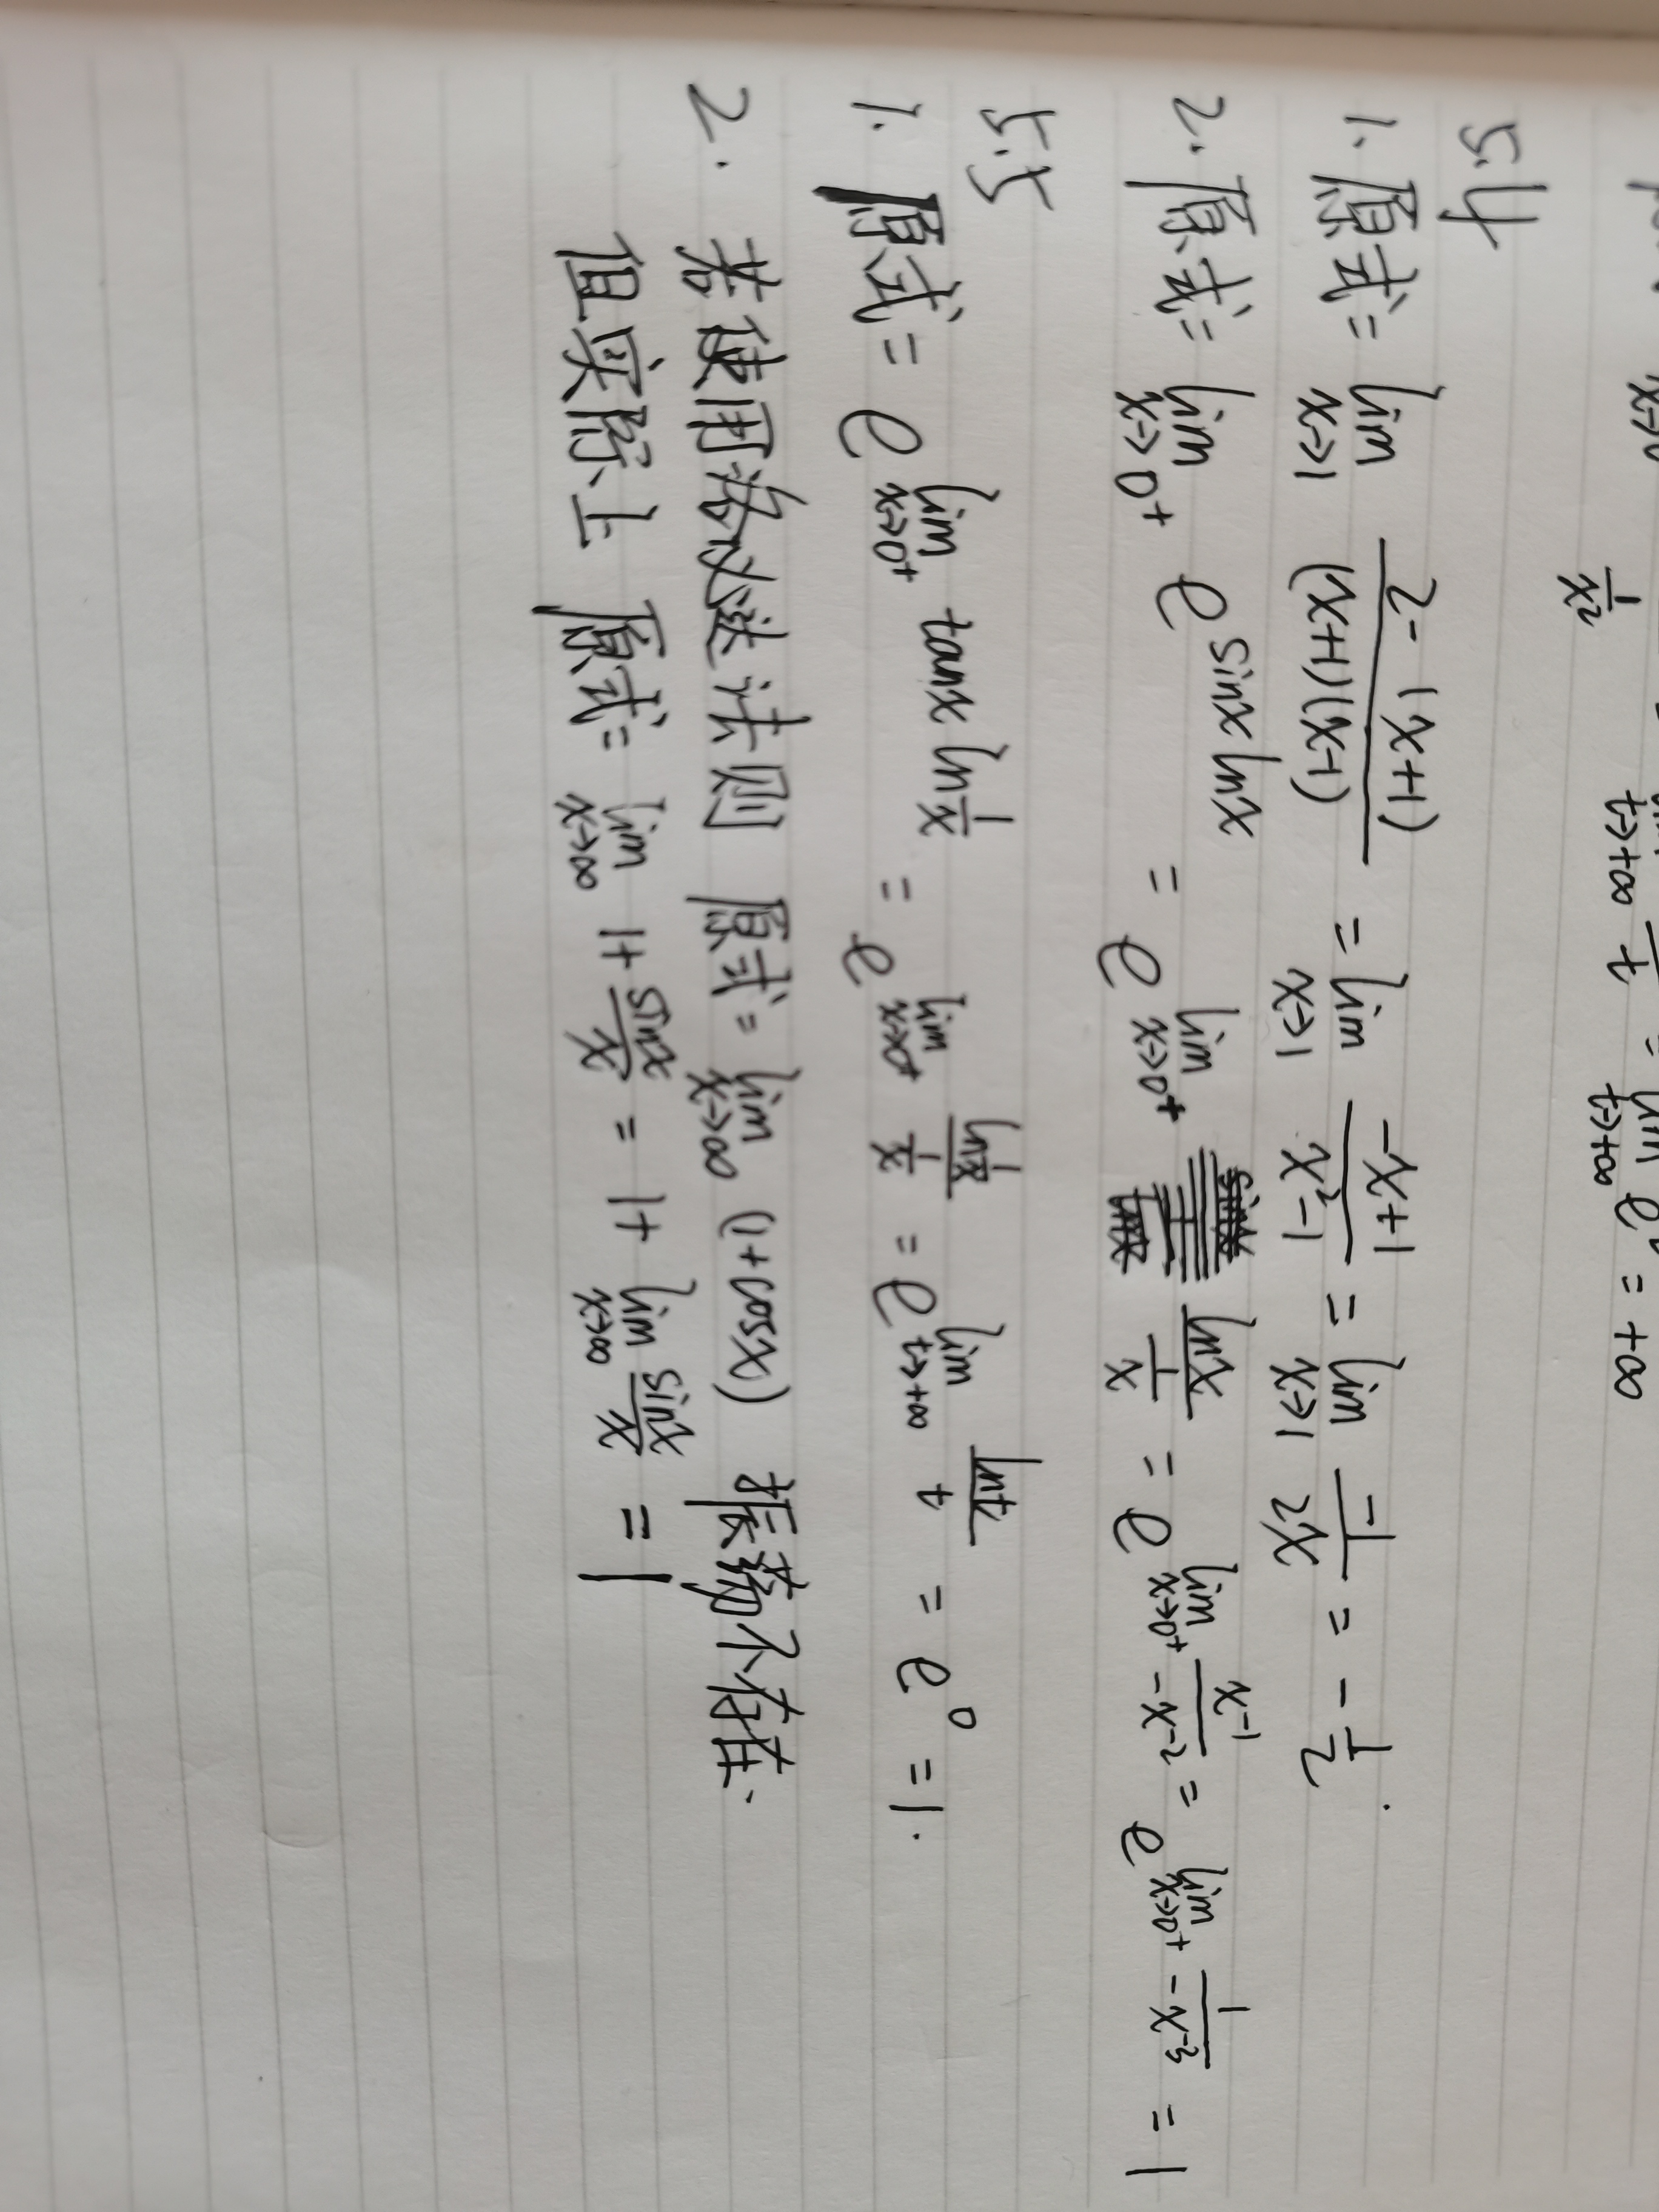 x→0 1/x² = lim t→+∞ /t = lim t→+∞ e = +∞
5.4
1. 原式= lim x→1 (2-(x+1))/((x+1)(x-1)) = lim x→1 (-x+1)/(x²-1) = lim x→1 (-1)/(2x) = -1/2
2. 原式= lim x→0⁺ e^(sinx lnx) = e^(lim x→0⁺ (lnx)/(1/x)) = e^(lim x→0⁺ (x⁻¹)/(-x⁻²)) = e^(lim x→0⁺ 1/(-x⁻³)) = 1
5.5
1. 原式= e^(lim x→0⁺ tanx ln(1/x)) = e^(lim x→0⁺ (ln(1/x))/(1/x)) = e^(lim t→+∞ (lnt)/t) = e⁰ =1.
2. 若使用洛必达法则 原式= lim x→∞ (1+cosx) 振荡不存在.
但实际上 原式= lim x→∞ 1+(sinx)/x = 1+ lim x→∞ (sinx)/x = 1